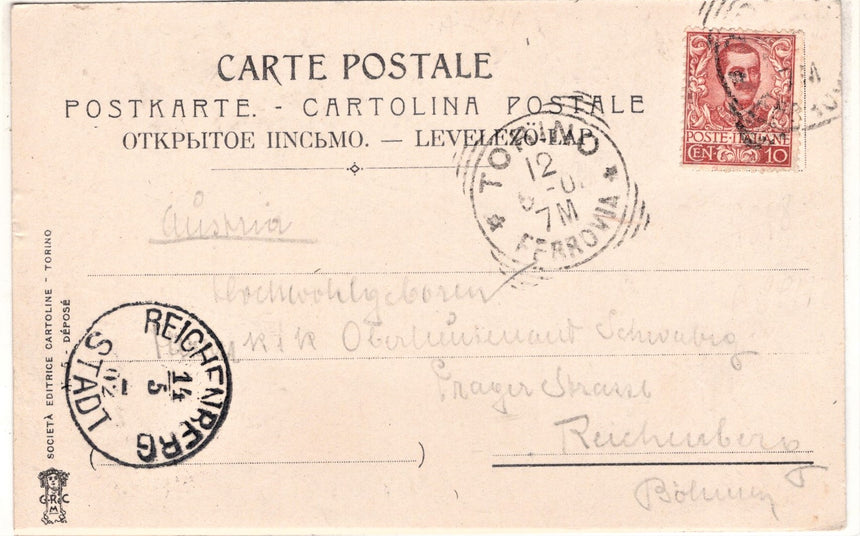 CARTE POSTALE
POSTKARTE. - CARTOLINA POSTALE
ОТКРЫТОЕ ПИСЬМО. — LEVELEZŐ-LAP
POSTE ITALIANE
CEN. 10
TORINO
12
7M
FERROVIA
Austria
Hochwohlgeboren
k k Oberlieutenant
Prager Strasse
Reichenberg
Böhmen
REICHENBERG
STADT
14
5
02
1
SOCIETÀ EDITRICE CARTOLINE - TORINO
DÉPOSÉ
G.R.C
M